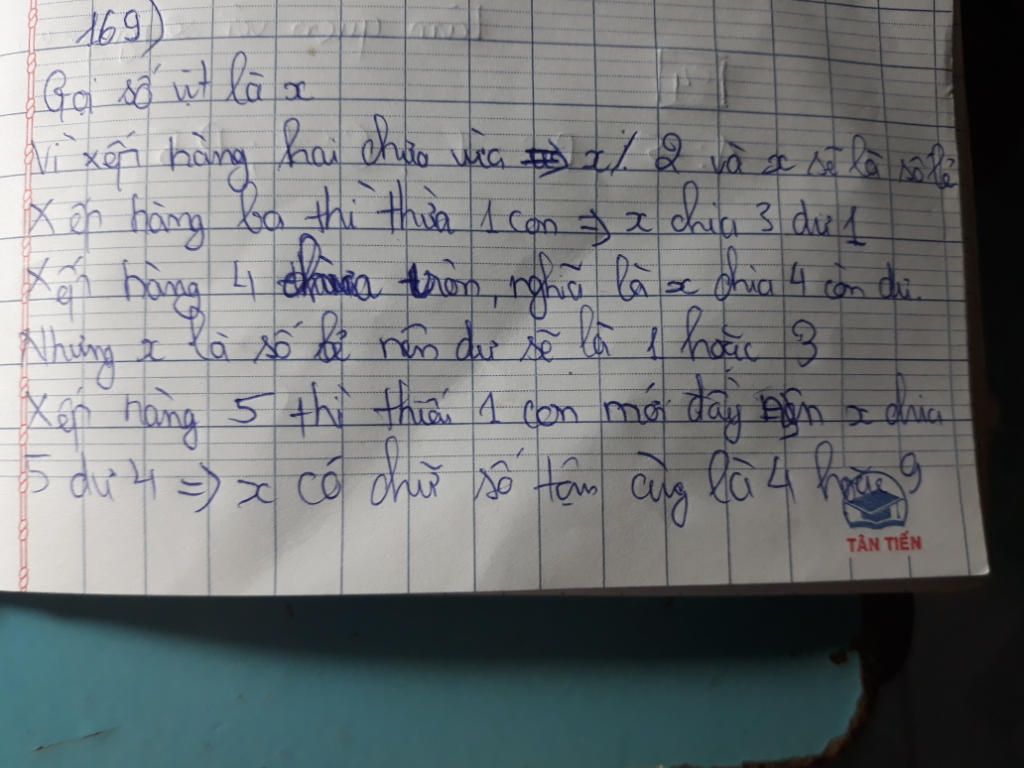 169)
Gọi số vịt là x
Vì xếp hàng hai chưa vừa => x⁒ 2 và x sẽ là số lẻ
Xếp hàng ba thì thừa 1 con => x chia 3 dư 1
Xếp hàng 4 chưa tròn, nghĩa là x chia 4 còn dư.
Nhưng x là số lẻ nên dư sẽ là 1 hoặc 3
Xếp hàng 5 thì thiếu 1 con mới đầy nên x chia
5 dư 4 => x có chữ số tận cùng là 4 hoặc 9
TÂN TIẾN